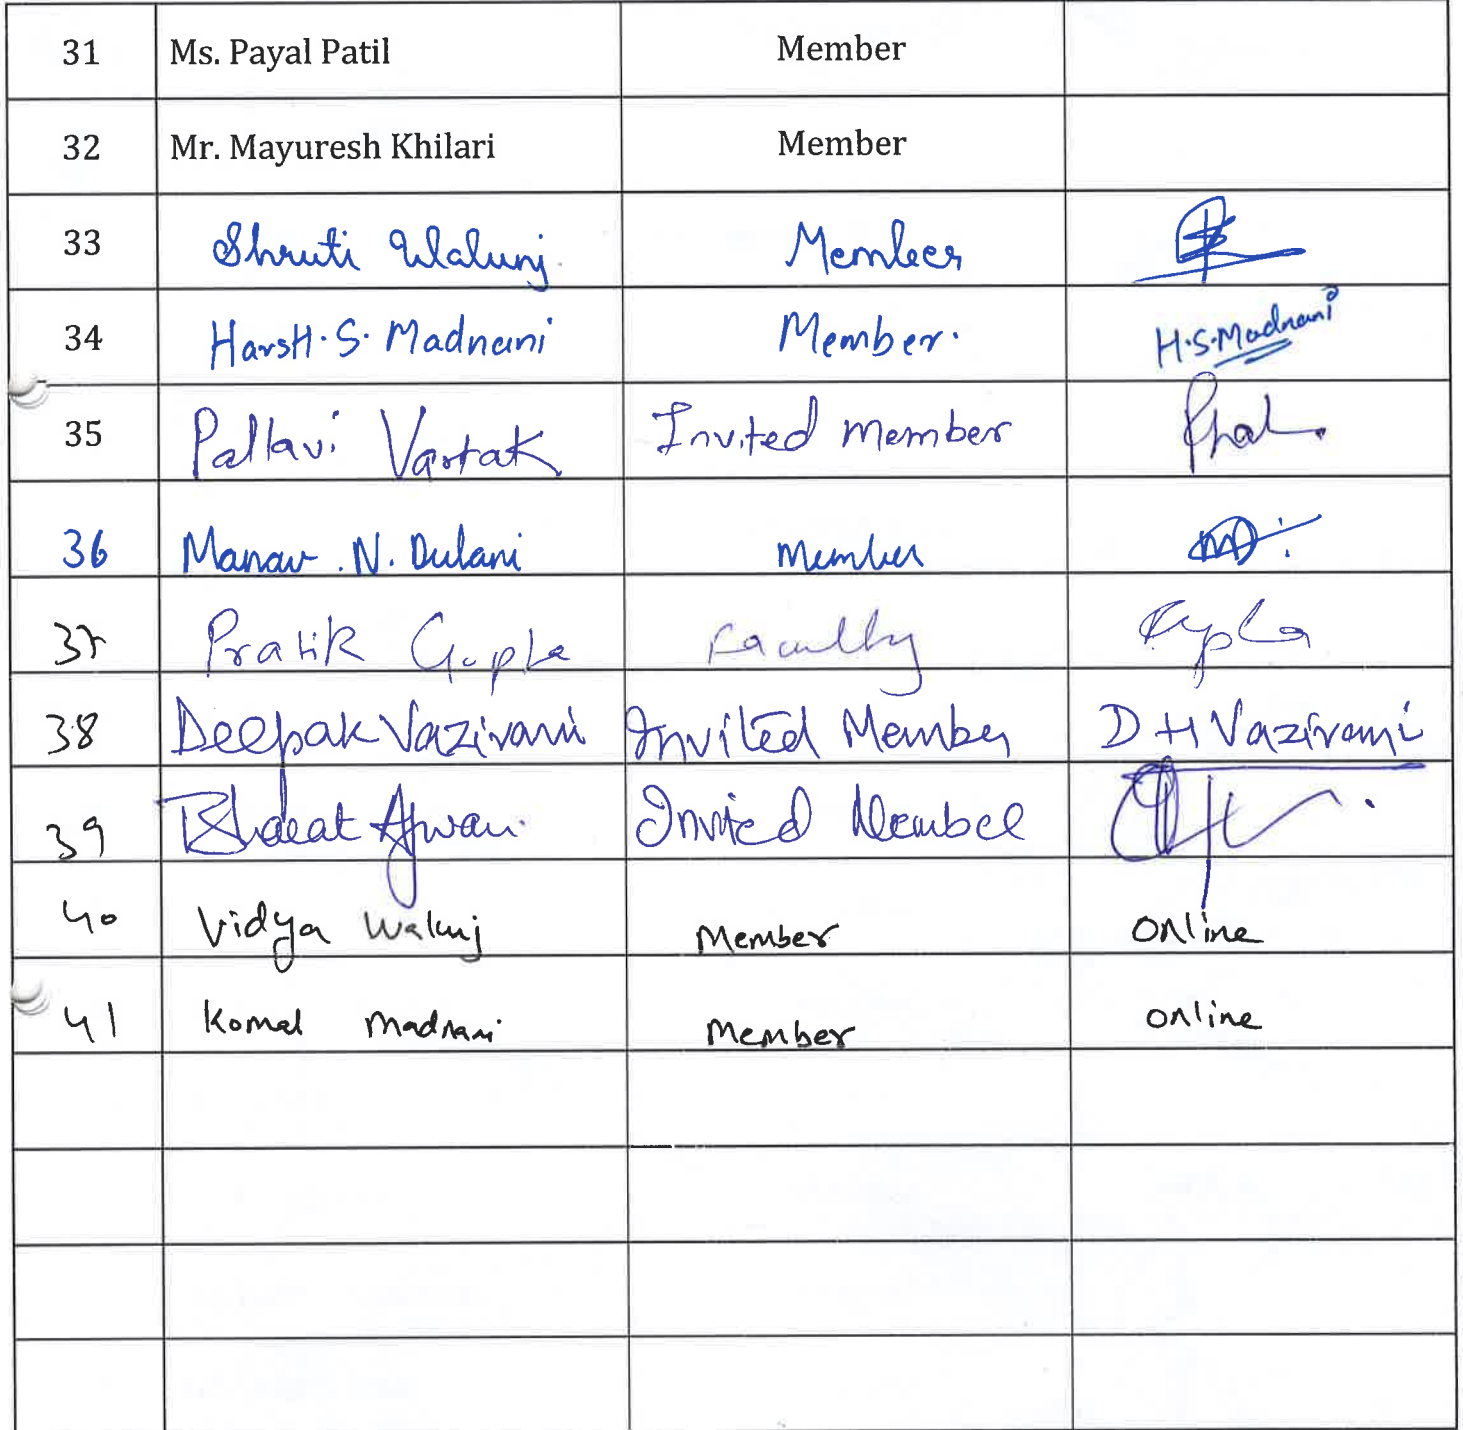 31 Ms. Payal Patil Member
32 Mr. Mayuresh Khilari Member
33 Shruti Walunj Member
34 Harsh.S. Madnani Member. H.S.Madnani
35 Pallavi Vartak Invited member
36 Manav .N. Dulani Member
37 Pratik Gupta Faculty Gupta
38 Deepak Vazirani Invited Member D H Vazirani
39 Bharat Invited Member
40 Vidya Walunj Member online
41 Komal Madnani Member online